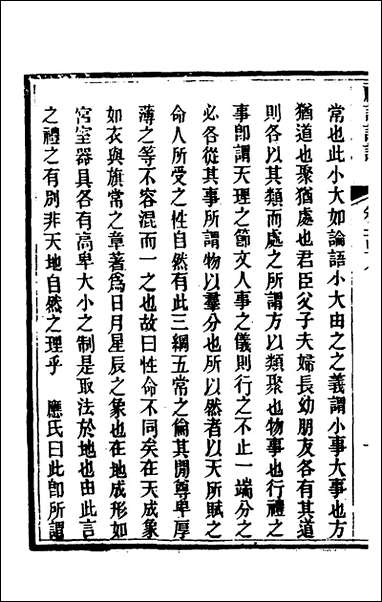 常也此小大如論語小大由之之義謂小事大事也方
猶道也聚猶處也君臣父子夫婦長幼朋友各有其道
則各以其類而處之所謂方以類聚也物事也行禮之
事卽謂天理之節文人事之儀則行之不止一端分之
必各從其事所謂物以羣分也所以然者以天所賦之
命人所受之性自然有此三綱五常之倫其閒尊卑厚
薄之等不容混而一之也故曰性命不同矣在天成象
如衣與旗常之章著爲日月星辰之象也在地成形如
宮室器具各有高卑大小之制是取法於地也由此言
之禮之有別非天地自然之理乎　應氏曰此卽所謂